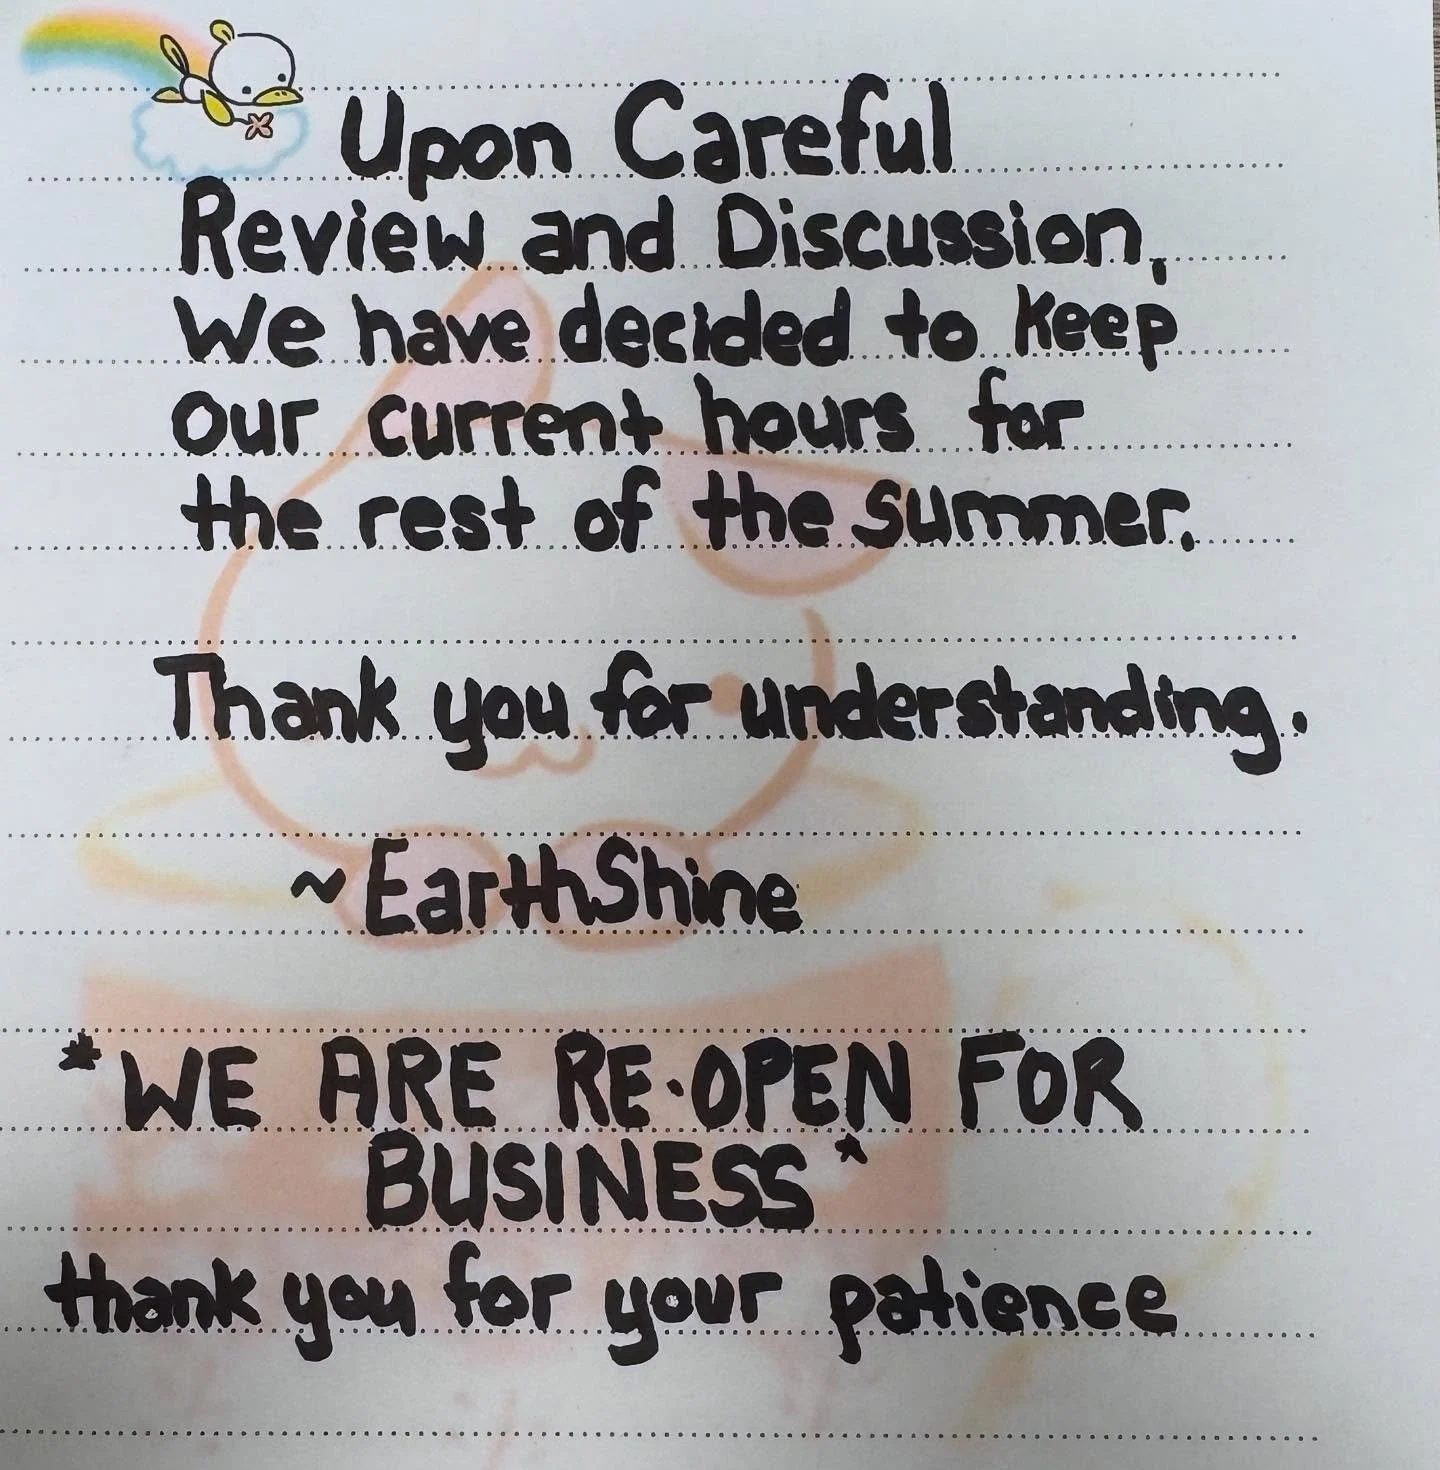 Upon Careful
Review and Discussion,
We have decided to keep
our current hours for
the rest of the summer.
Thank you for understanding.
~ EarthShine
*WE ARE RE-OPEN FOR
BUSINESS*
thank you for your patience